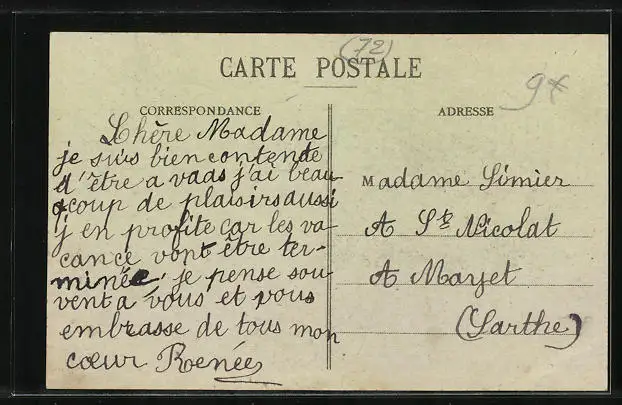 (72)
CARTE POSTALE
9€
CORRESPONDANCE
Chère Madame
je suis bien contende
d'être a vaas j'ai beau
coup de plaisirs aussi
j en profite car les va
cance vont être ter-
minée, je pense sou
vent a vous et vous
embrasse de tous mon
cœur Renée
ADRESSE
Madame Simier
A Ste Nicolat
A Mayet
(Sarthe)